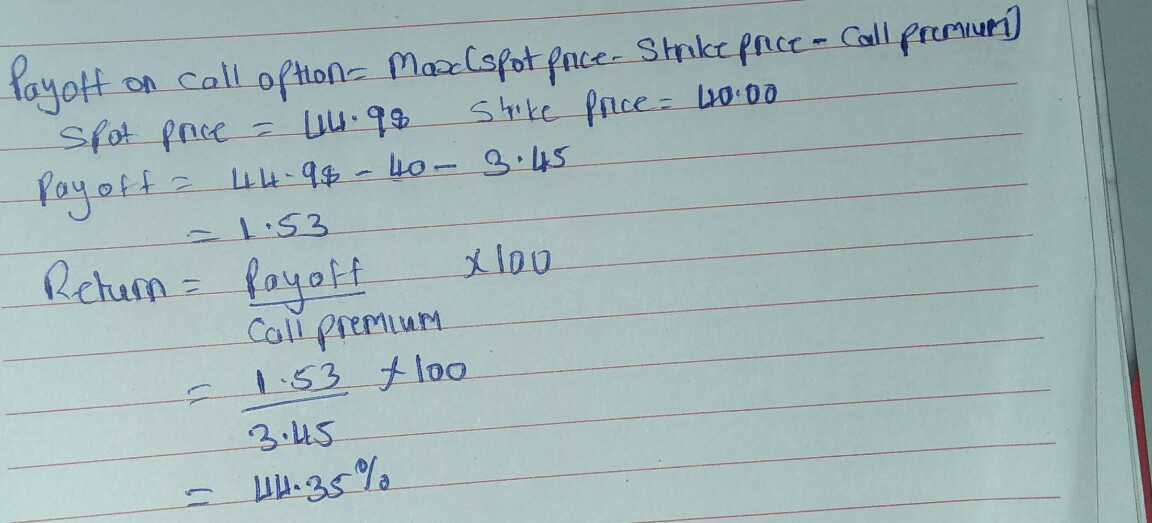 Payoff on call option = Max(spot price - Strike price - Call premium)
Spot price = 44.98 Strike price = 40.00
Payoff = 44.98 - 40 - 3.45
= 1.53
Return = Payoff x 100
Call premium
= 1.53 x 100
3.45
= 44.35%